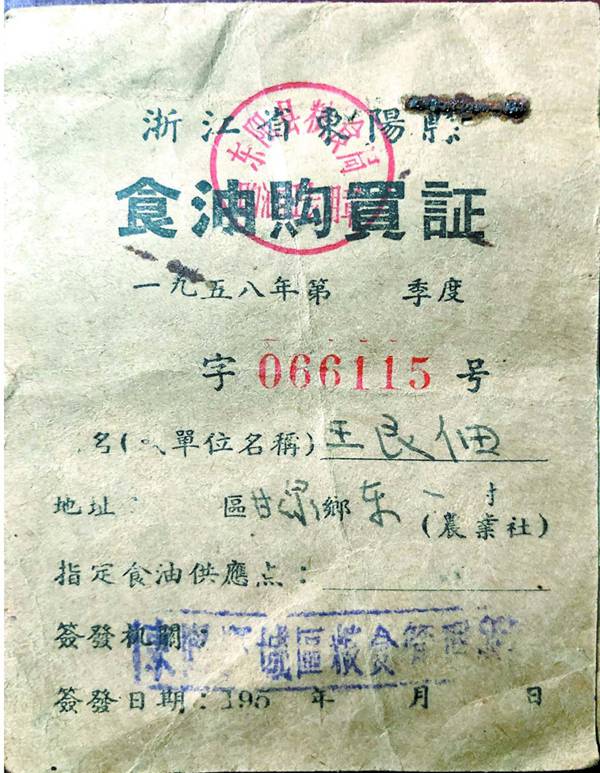 浙江省東陽縣
东阳县粮食局
食油购買証
一九五八年第 季度
字 066115 号
名( 單位名稱) 王良佃
地址 區甘泉鄉东一村
(農業社)
指定食油供應点:
簽發机關:
城區粮食管理
簽發日期:195 年 月 日